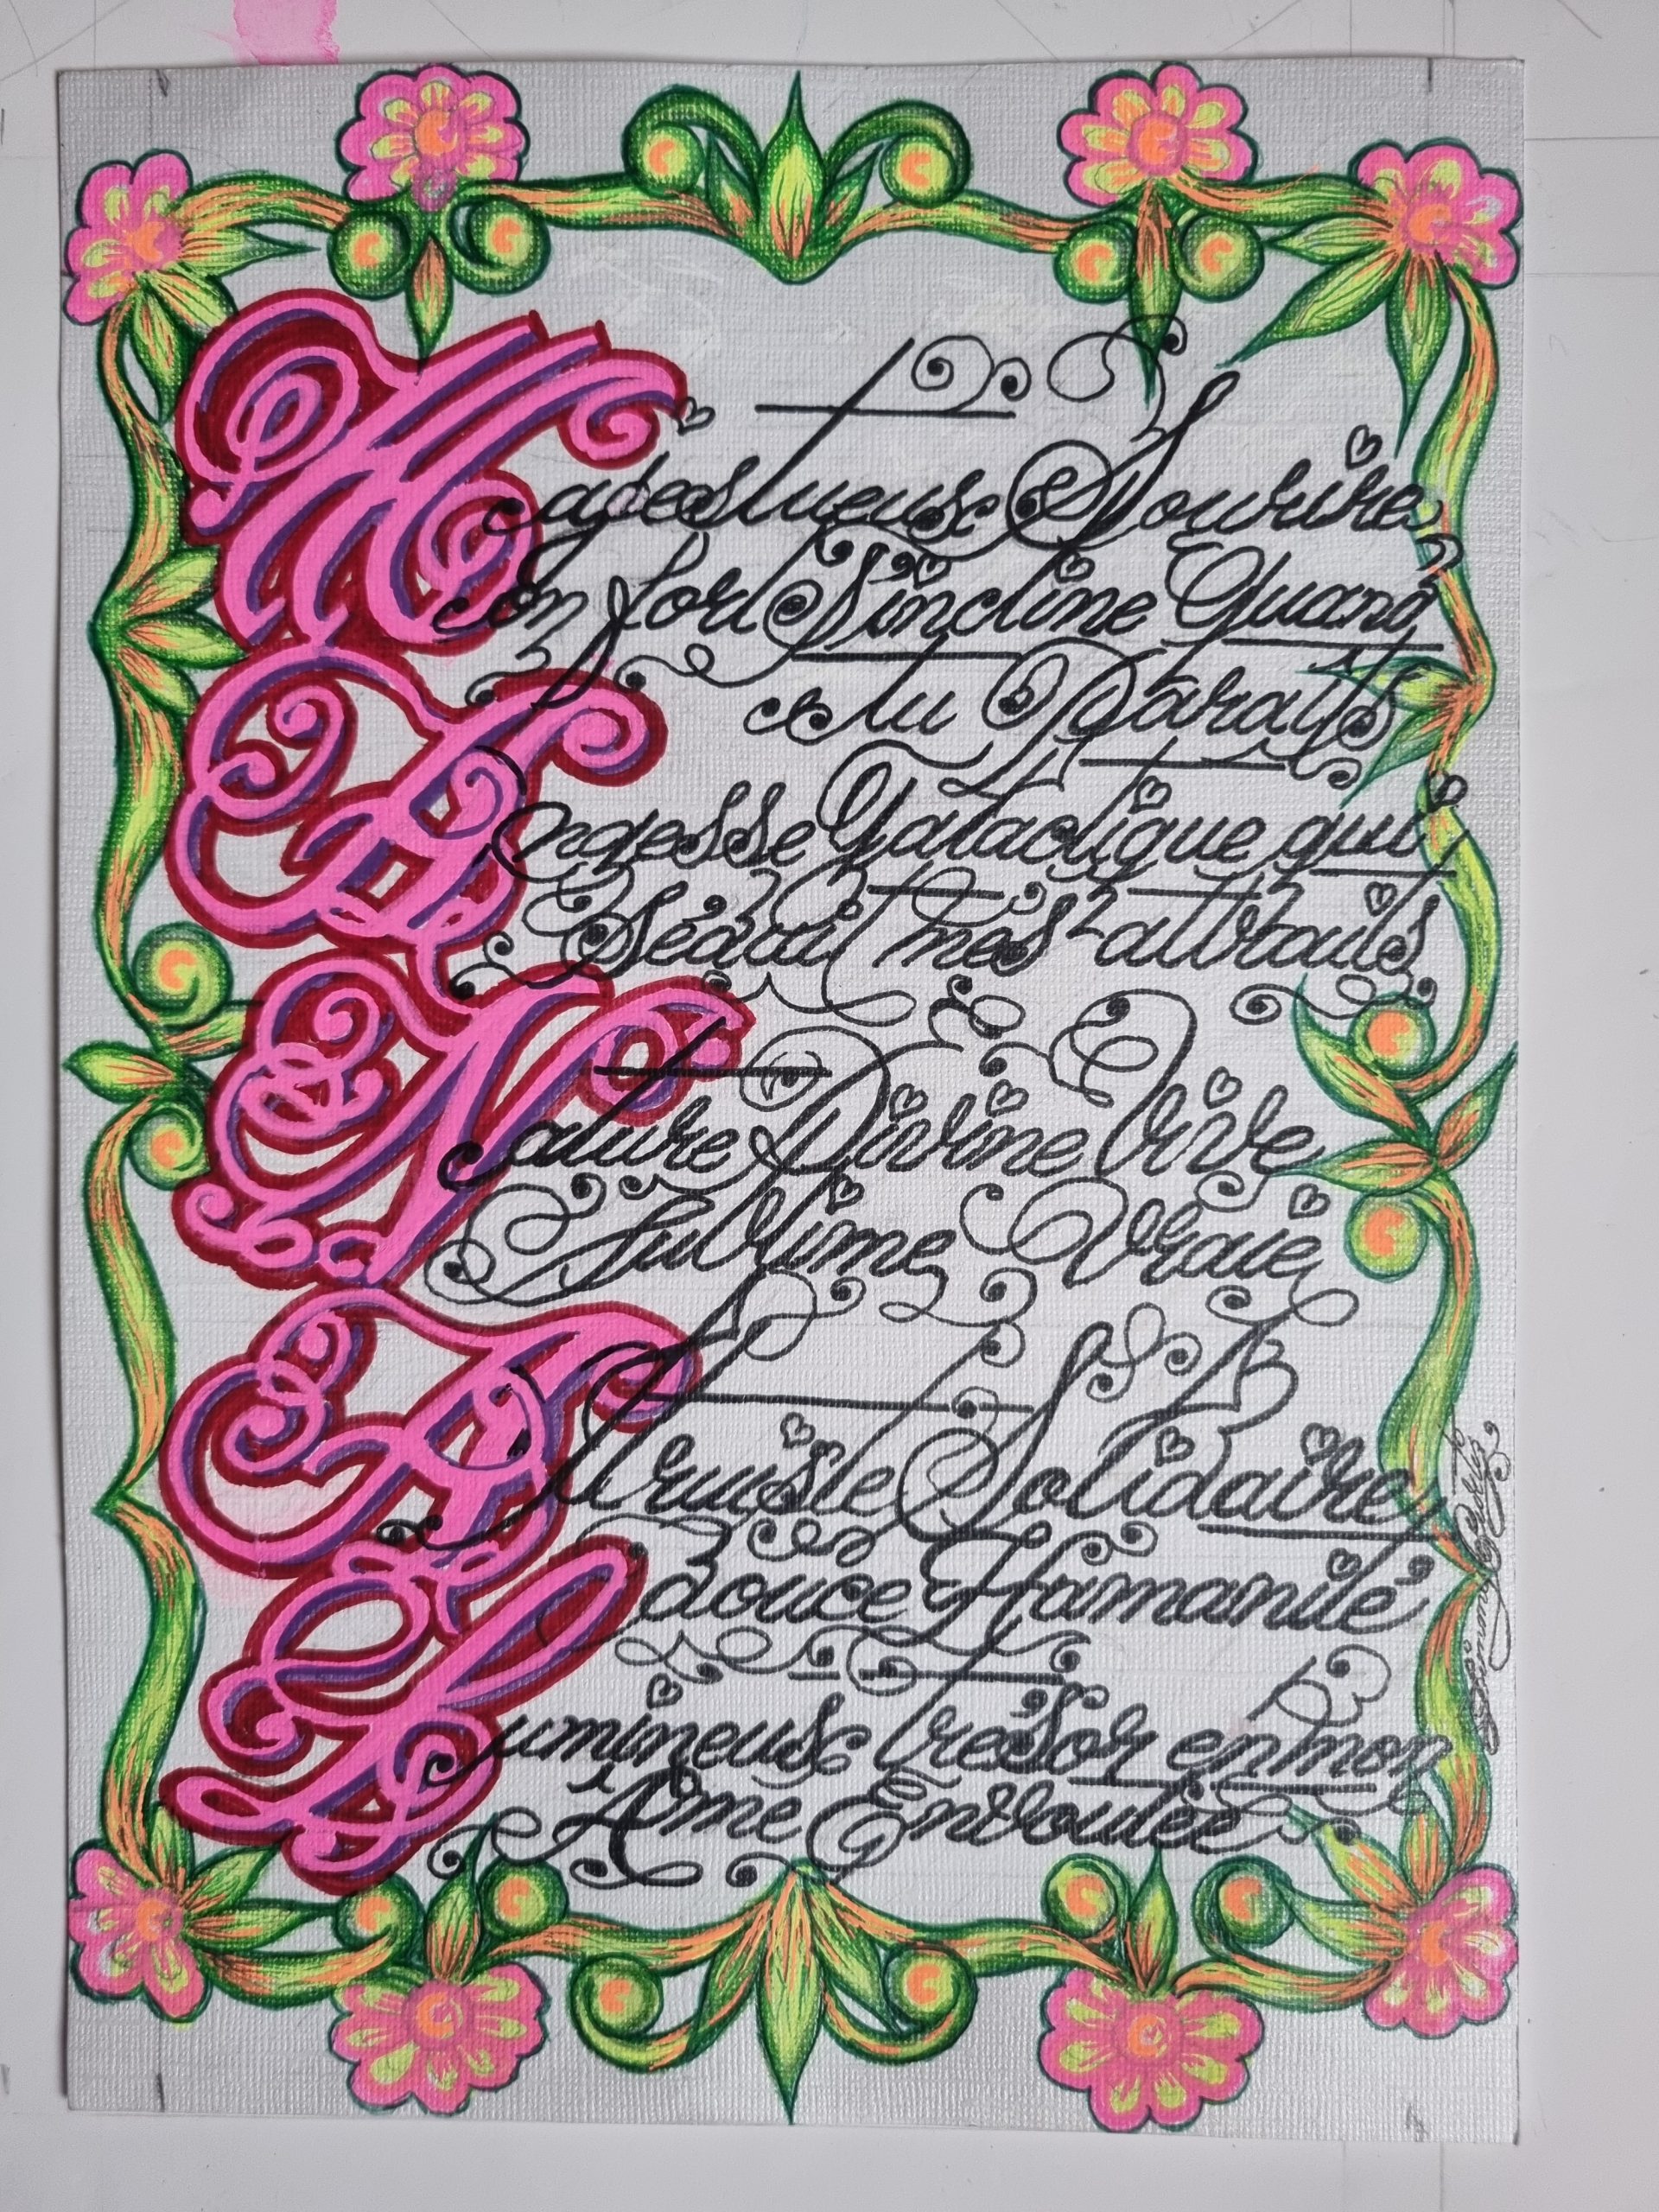 Majestueux Sourire
on fort S'incline Quand
tu Paraîs
Angesse Galactique qui
Séduit mes attraits
Nature Divine Vive
Sublime Vraie
Altruiste Solidaire
douce Humanité
Lumineux trésor en mon
Âme Envoutée